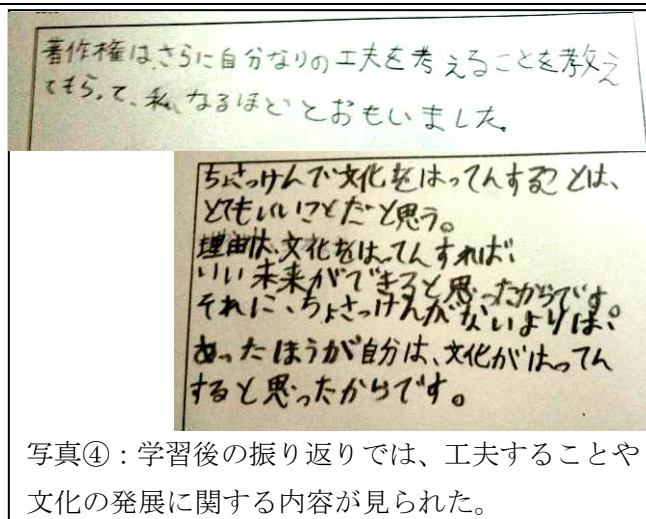 著作権は、さらに自分なりの工夫を考えることを教え
てもらって、私、なるほどとおもいました。
ちょさっけんで文化をはってんすることは、
とてもいいことだと思う。
理由は、文化をはってんすれば、
いい未来ができると思ったからです。
それに、ちょさっけんがないよりは、
あったほうが自分は、文化がはってん
すると思ったからです。
写真④：学習後の振り返りでは、工夫することや
文化の発展に関する内容が見られた。